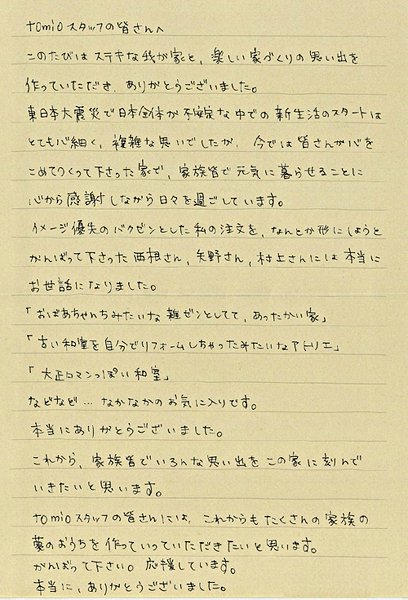 tomioスタッフの皆さんへ
このたびは ステキな我が家と、楽しい家づくりの思い出を
作っていただき、ありがとうございました。
東日本大震災で日本全体が不安定な中での新生活のスタートは
とても心細く、複雑な思いでしたが、今では皆さんが心を
こめてつくって下さった家で、家族皆で元気に暮らせることに
心から感謝しながら日々を過ごしています。
イメージ優先のバクゼンとした私の注文を、なんとか形にしようと
がんばって下さった西根さん、矢野さん、村上さんには本当に
お世話になりました。
「おばあちゃんちみたいな雑ゼンとしてて、あったかい家」
「古い和室を自分でリフォームしちゃったみたいなアトリエ」
「大正ロマンっぽい和室」
などなど… なかなかのお気に入りです。
本当にありがとうございました。
これから、家族皆でいろんな思い出をこの家に刻んで
いきたいと思います。
tomioスタッフの皆さんには、これからもたくさんの家族の
夢のおうちを作っていっていただきたいと思います。
がんばって下さい。応援しています。
本当に、ありがとうございました。